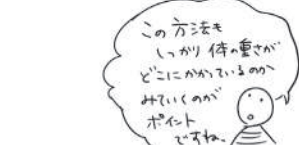 この方法も
しっかり体の重さが
どこにかかっているのか
みていくのが
ポイント
ですね。